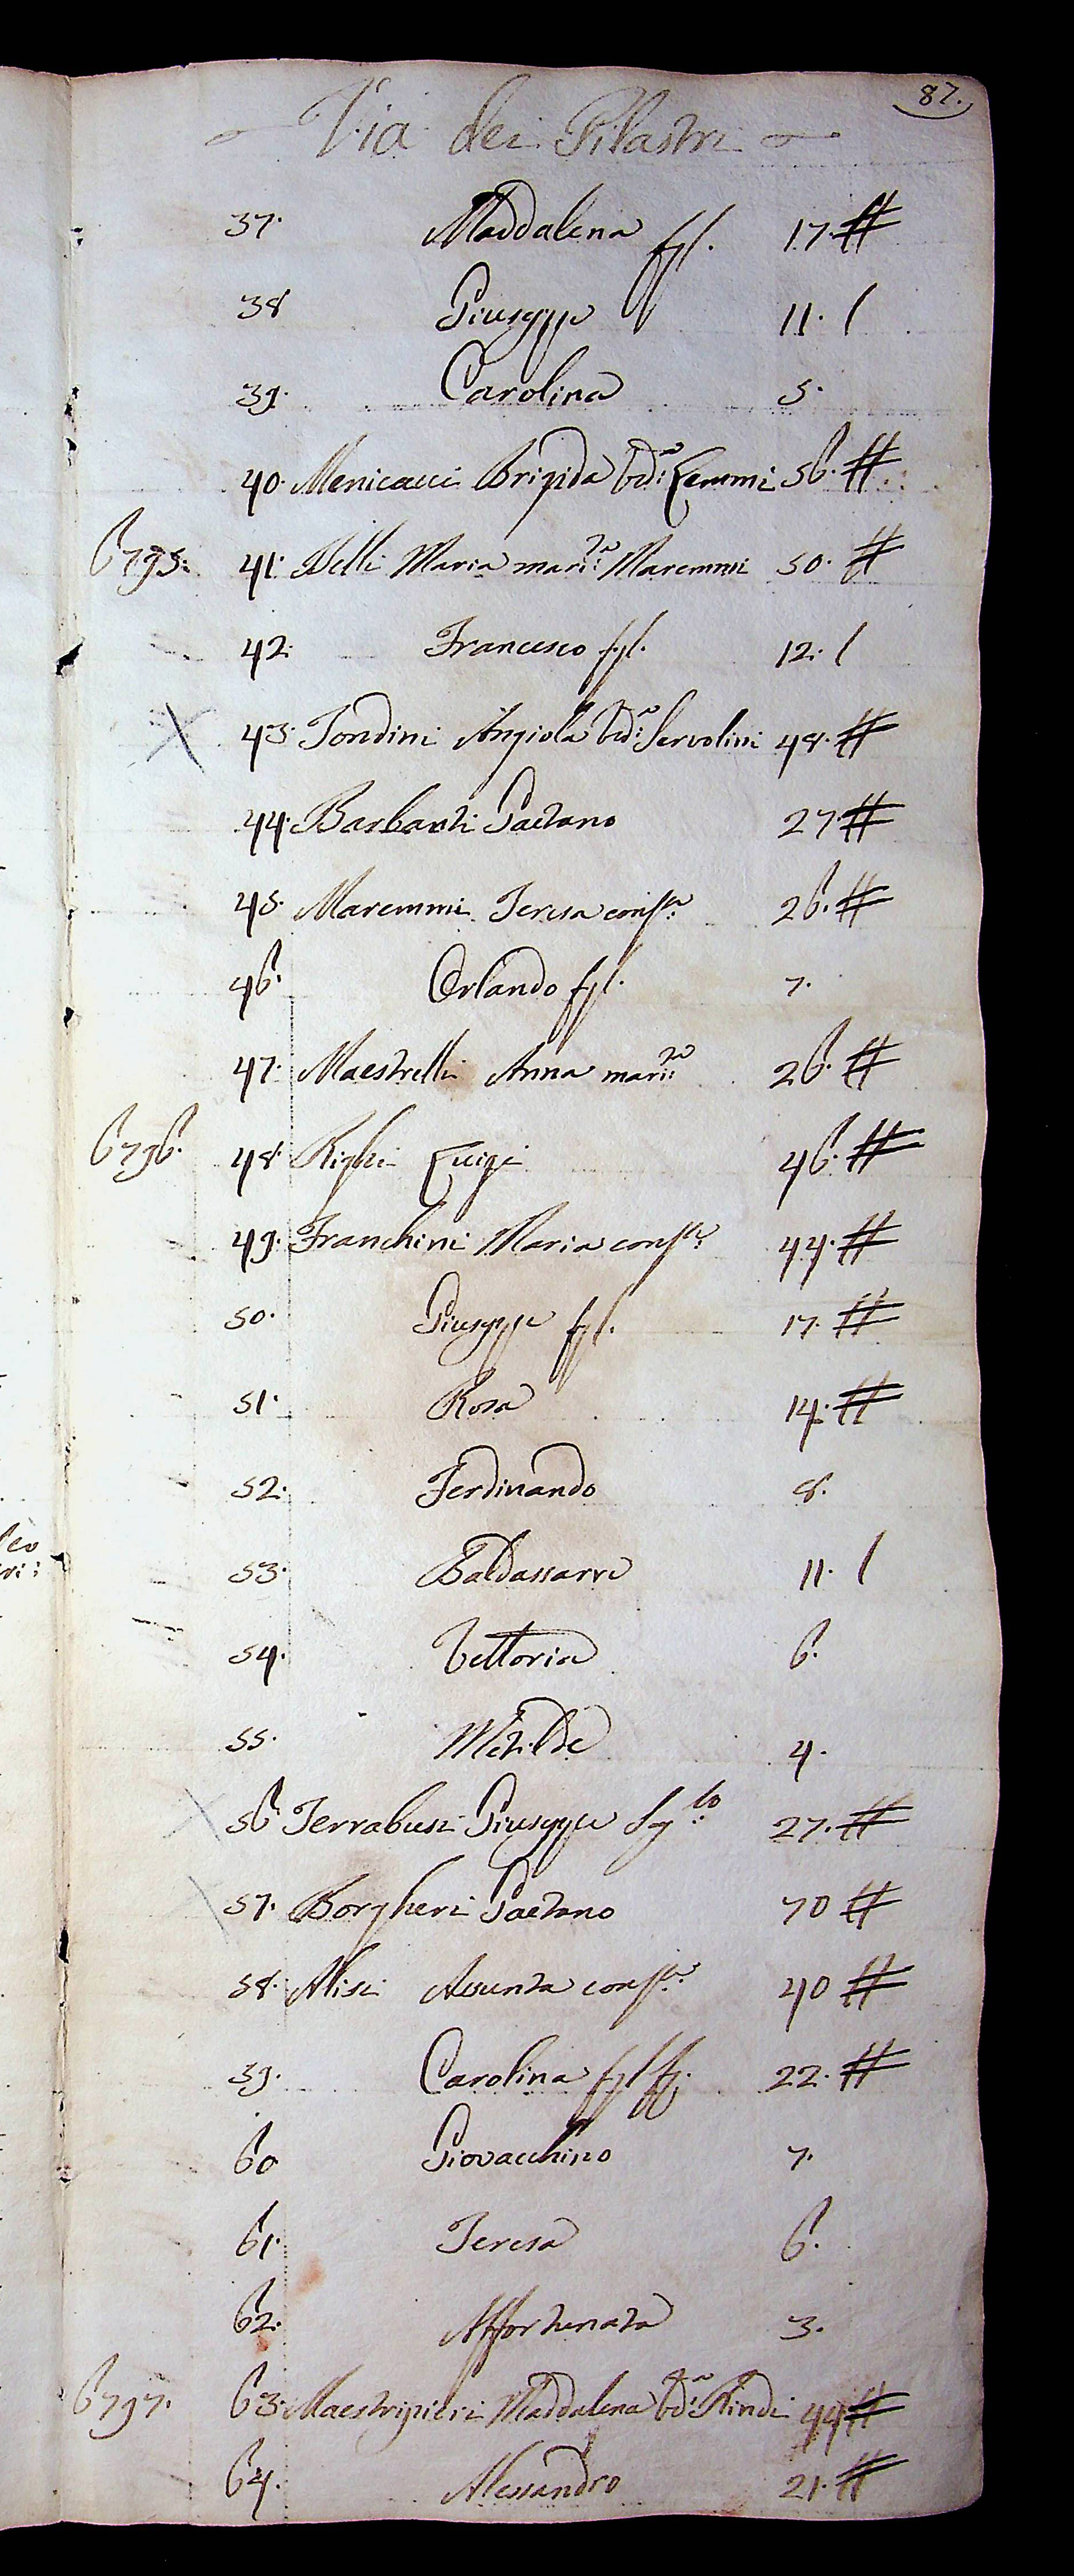 87.
Via dei Pilastri
37. Maddalena fgl. 17. #
38 Giuseppe 11. /
39. Carolina 5.
40. Menicacci Brigida vd:a Lemmi 56. #
6795: 41. Delli Maria mari:ta Maremmi 50. #
42. Francesco fgl. 12. /
X 43. Tondini Angiola vd:a Servolini 48. #
44. Barbanti Gaetano 27. #
45. Maremmi Teresa cons:te 26. #
46. Orlando fgl. 7.
47. Maestrelli Anna mari:ta 26. #
6796. 48. Righi Luigi 46. #
49. Franchini Maria cons:te 44. #
50. Giuseppe fgl. 17. #
51. Rosa 14. #
52. Ferdinando 8.
53. Baldassarre 11. /
54. Vettoria 6.
55. Metilde 4.
X 56. Terrabusi Giuseppe Sg:lo 27. #
\ 57. Borgheri Gaetano 70 #
58. Alisi Assunta cons:te 40 #
59. Carolina fgl 22. #
60 Giovacchino 7.
61. Teresa 6.
62. Affortunata 3.
6797. 63. Maestripieri Maddalena vd:a Rindi 44 #
64. Alessandro 21. #